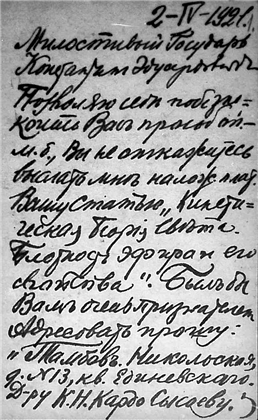 2-IV-1921.
Милостивый Государь
Константин Эдуардович
Позволяю себе побезпо-
коить Вас просьбой.
М. б., Вы не откажетесь
выслать мнѣ налож. плат.
Вашу статью „Кинети-
ческая теорiя свѣта.
Плотность эфира и его
свойства". Был бы
Вам очень признателен.
Адресовать прошу:
„Тамбов. Никольская,
д. №13, кв. Единевского.
Д-ру К.Н. Кардо-Сысоеву."